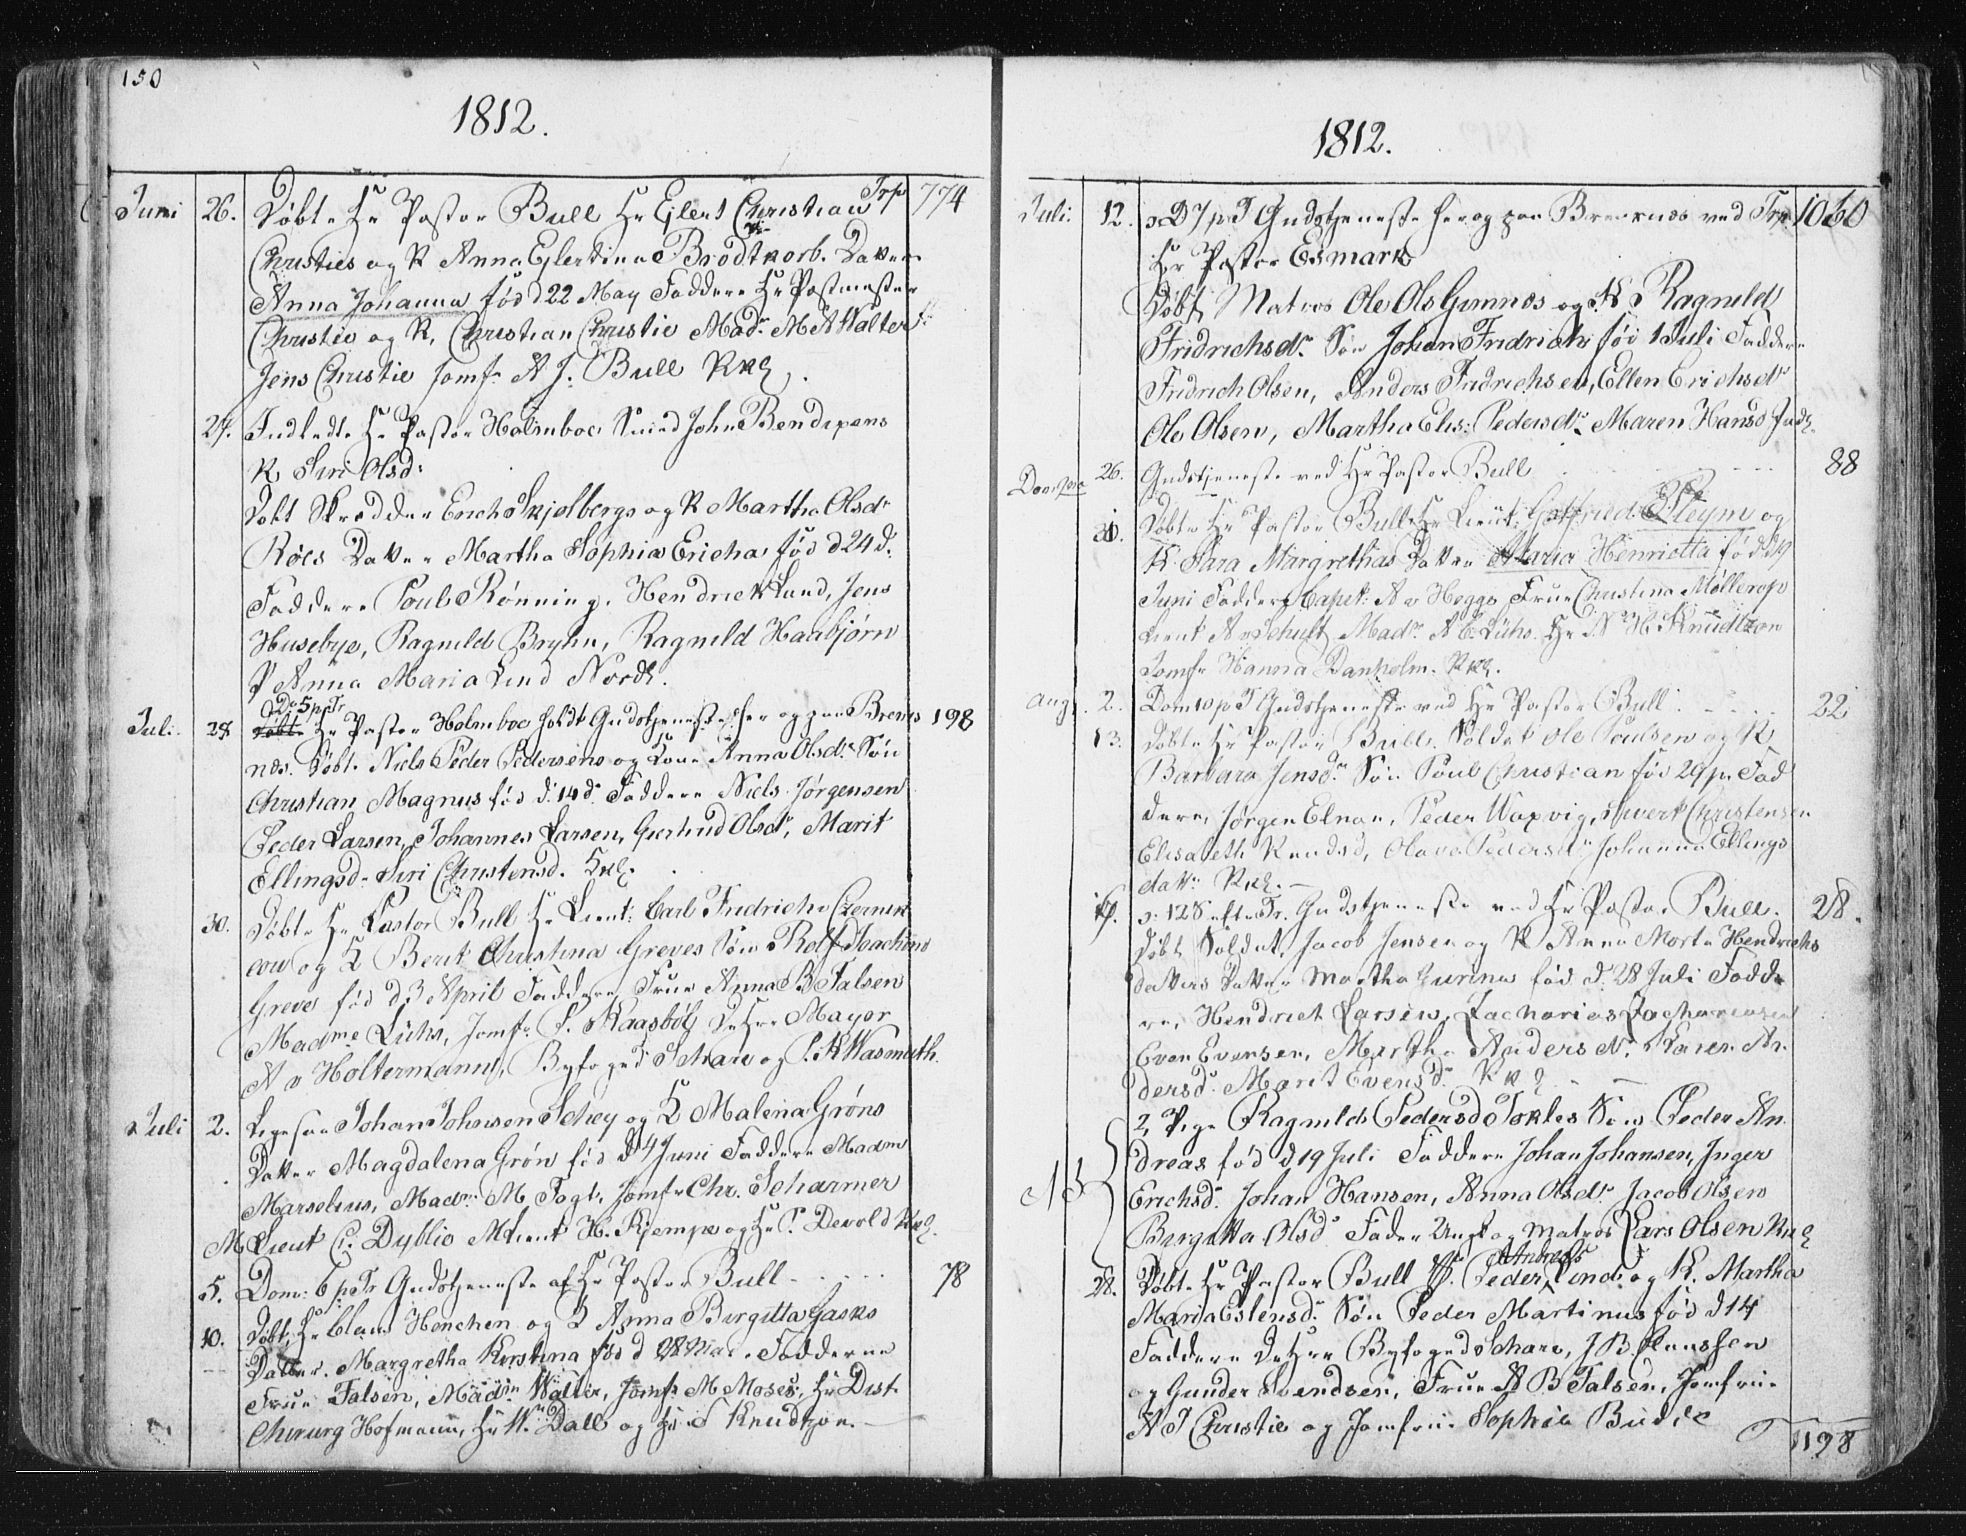 150
1812.
Juni 26. Døbte Hr Pastor Bull Hr Ejlert Christian Trp 774
Christies og K Anna Ejlertina Brodtkorb. Datter
Anna Johanna fød d 22 May Faddere Hr Postmester
Christie og K, Christian Christie Madr M A Walter
Jens Christie Jomfr A J. Bull KKl.
27. Indledte Hr Pastor Holmboe Smed John Bendixens
K Siri Olsd:
Døbt Skrædder Erich Skjølbergs og K Martha Olsdr
Røes Datter Martha Sophia Ericha fød d 24 d.
Faddere Poul Rønning, Hendrick Lund, Jens
Husebye, Ragnild Bryhn, Ragnild Haabjørn
P Anna Maria Lind Nordl.
Do 5 p Tr
Juli. 28 Døbte Hr Pastor Holmboe holdt Gudstjeneste her og paa Brems 198
næs. Døbt Niels Peder Pedersens og Kone Anna Olsdr Søn
Christian Magnus fød d. 14 d. Faddere Niels Jørgensen
Peder Larsen, Johannes Larsen, Gertrud Olsdr, Marit
Ellingsd. Siri Christensd. Kkl.
30. Døbte Hr Pastor Bull Hr Lieut: Carl Fridrich Czernik
cow og K Berit Christina Greves Søn Rolf Joachim
Greve fød d 3 April Faddere Frue Anna B Falsen
Madme Lühs, Jomfr P. Kaasbøl De Hrr Mayor
A v Holtermann, Byfoged Schare og J. K Wasmuth.
Juli 2. Ligesaa Johan Johnsen Schey og K Malena Grøns
Datter Magdalena Grøn fød d 4 Juni Faddere Madm
Marselius, Madm M Fogt, Jomfr Chr. Scharmer
M Lieut C: Dyblie M Lieut H. Kjempe og Hr P. Devold Kkl.
5. Dom: 6 p Tr Gudstjeneste af Hr Pastor Bull 78
10. Døbt Hr Claus Henchen og K Anna Birgitta Gasks
Datter. Margretha Kirstina fød d 28 Mai. Fadderne
Frue Falsen, Madm Walter, Jomfr M Moses, Hr Dist
Chirurg Hofmann, Hr N. Dall og Hr S Knudtzon.
1812.
Juli. 12. D 7 p T Gudstjeneste her og paa Bremsnæs ved Trp. 1060
Hr Pastor Esmark
Døbt Matros Ole Ols Gumnæs og K Ragnild
Fridrichsdr Søn Johan Fridrich fød 1 Juli Faddere
Fridrich Olsen, Anders Fridrichsen, Ellen Erichsdr
Ole Olsen, Martha Elis: Pedersdr Maren Hansd Indl.
26. Gudstjeneste ved Hr Pastor Bull 88
30. Døbte Hr Pastor Bull Hr Lieut: Gotfried Pleym og
K Sara Margrethas Datter Maria Henriette fød d 19
Juni Faddere Capt: A v Hegge Frue Christina Møllerop
Lieut A v Schult Madr A C Lühs. Hr N H Knudtzon
Jomfr Hanna Danholm. Kkl.
Aug. 2. Dom 10 p T Gudstjeneste ved Hr Pastor Bull 22
13. Døbte Hr Pastor Bull. Soldat Ole Poulsen og K
Barbara Jensdr Søn Poul Christian fød 29 p. Fad
dere, Jørgen Elnan, Peder Waxvig, Sivert Christensen
Elisabeth Knudsd, Olava Pedersdr Johanna Ellings
datr Kkl.
12 S efter Tr. Gudstjeneste ved Hr Pastor Bull. 28.
Døbt Soldat Jacob Jensen og K Anna Marta Hendrichs
datters Datter Martha Gurina fød d. 28 Juli Fadde
re, Hendrich Larsen, Zacharias Zachariasen
Even Evensen, Martha Andersdr. Karen An
dersd. Marit Evensd. Kkl
2, Pige Ragnild Pedersd Tokles Søn Peder An
NB
dreas fød d 19 Juli Faddere Johan Johansen, Inger
Erichsd. Johan Hansen, Anna Olsdr Jacob Olsen
Birgitta Olsd Fader Ungk og Matros Lars Olsen Kkl
Andreas
28. Døbte Hr Pastor Bull Peder Lind og K. Martha
Maria Eslensd. Søn Peder Martinus fød d 14
Faddere De Hrr Byfoged Schare, J B Clausen
og Gunder Svendsen, Frue A B Falsen, Jomfrue
A J Christie og Jomfrue Sophie Budde
1198